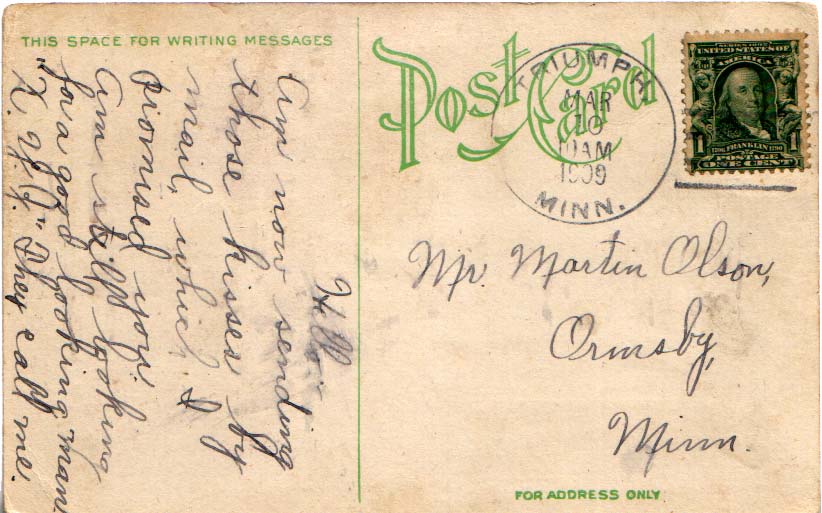 THIS SPACE FOR WRITING MESSAGES
Hello.
Am now sending
those kisses by
mail, which I
promised you.
Am still looking
for a good looking man.
"X.Y.Z." They call me.
Post Card
TRIUMPH
MAR
10
11AM
1909
MINN.
SERIES 1902
UNITED STATES OF
AMERICA
1 1
1706 FRANKLIN 1790
POSTAGE
ONE CENT
Mr. Martin Olson,
Ormsby,
Minn.
FOR ADDRESS ONLY